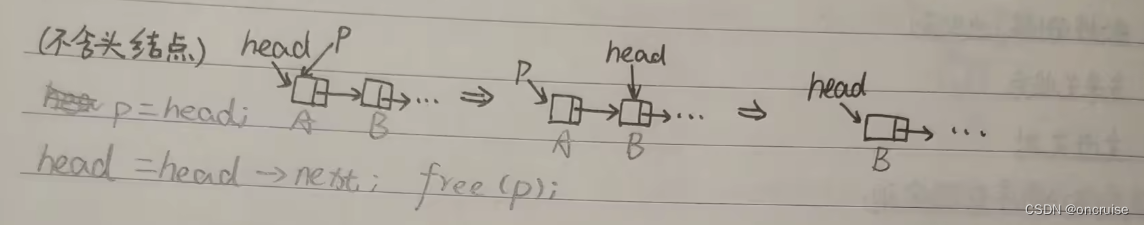 (不含头结点) head P P head head
p=head; A B ... ⇒ A B ... ⇒ B ...
head =head→next; free(p);
CSDN @oncruise